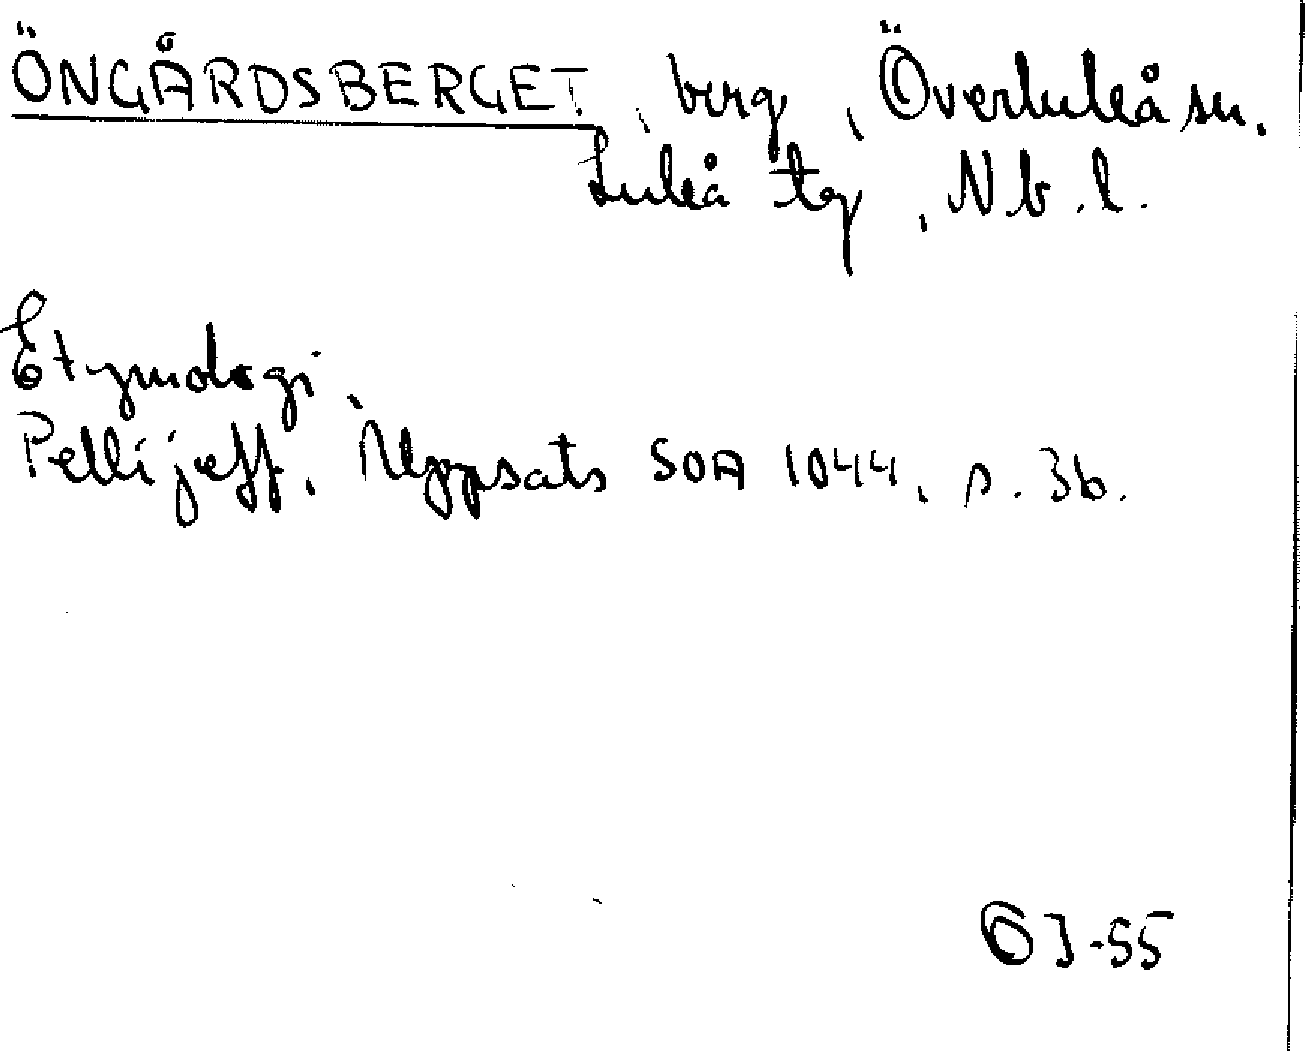 ÖNGÅRDSBERGET, berg, Överluleå sn.
Luleå tg, Nb. l.
Etymologi.
Pellijeff, Uppsats SOA 1044, s. 36.
ÖJ-55